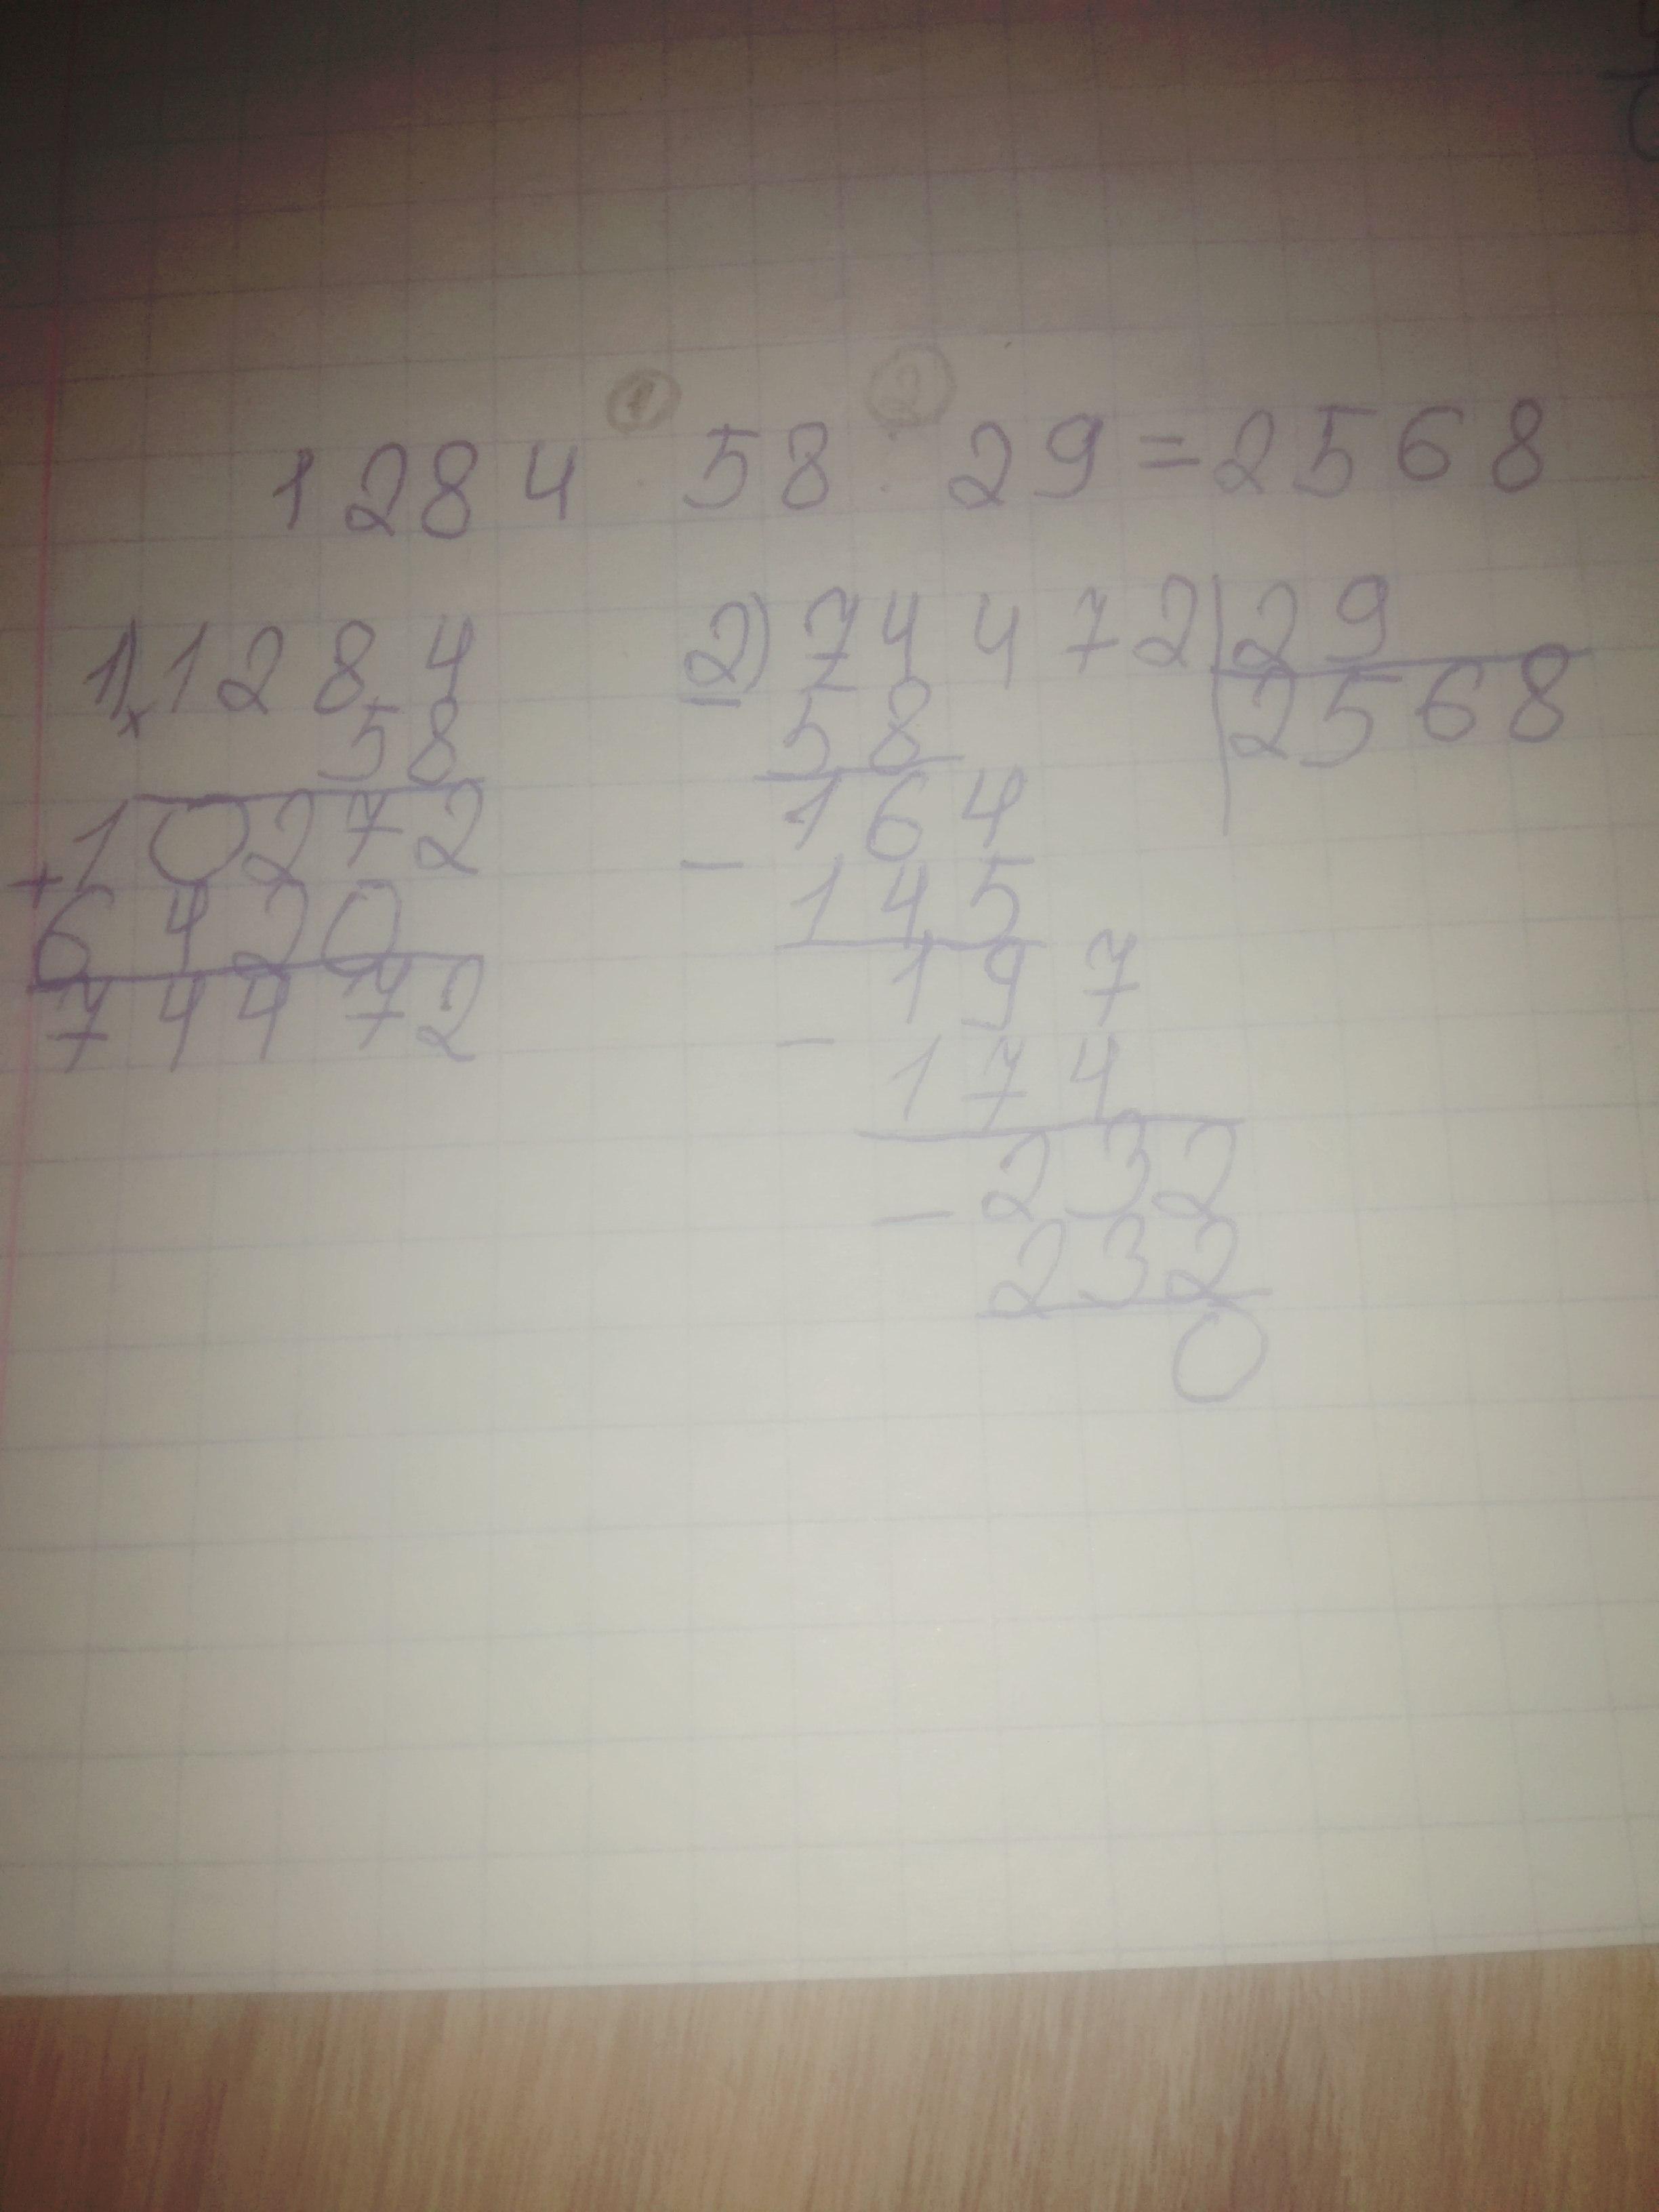 ① ②
1284 · 58 : 29 = 2568
1) 1284
× 58
10272
+ 6420
74472
2) 74472 | 29
− 58 2568
164
− 145
197
− 174
232
− 232
0